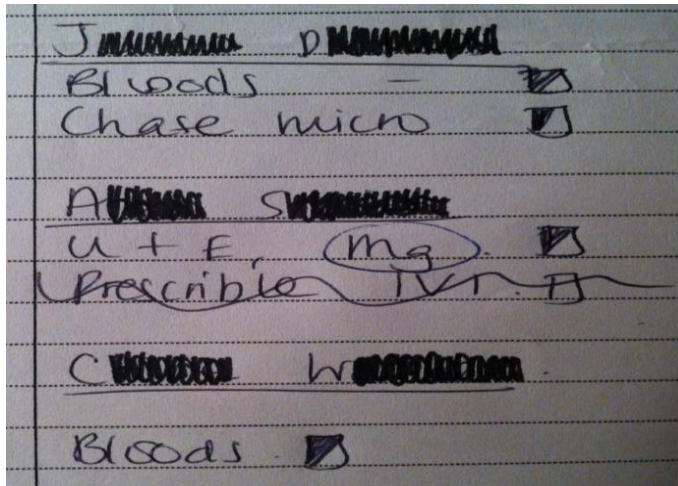 J D
Bloods -
Chase micro
A S
U + E, Mg.
Prescribe IVI.
C W
Bloods